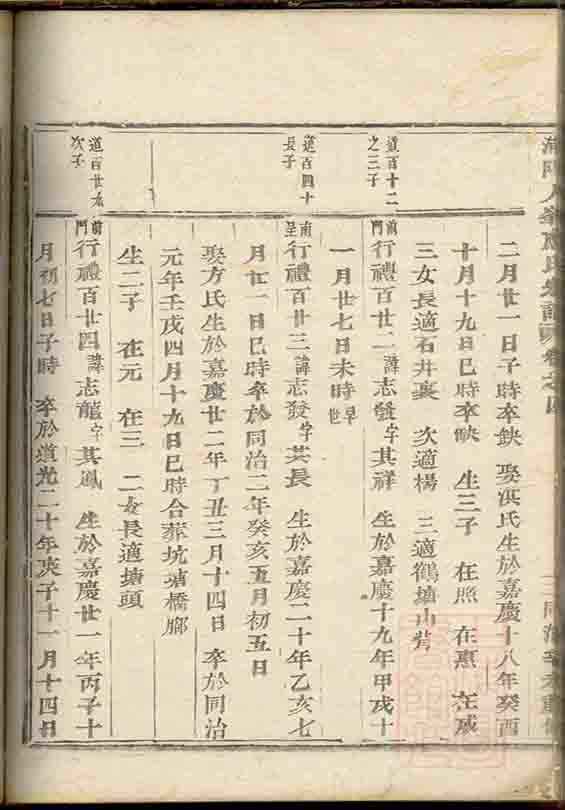 二月廿一日子時卒缺 娶洪氏生於嘉慶十八年癸酉
十月十九日巳時卒缺 生三子 在照 在惠 在成
三女長適石井裏 次適楊 三適鶴塘山背
道百十二之三子
前門行禮百廿二諱志發字其祥 生於嘉慶十九年甲戌十
一月廿七日未時早世
道百四十長子
南呈行禮百廿三諱志發字其長 生於嘉慶二十年乙亥七
月廿一日巳時卒於同治二年癸亥五月初五日
娶方氏生於嘉慶廿二年丁丑三月十四日 卒於同治
元年壬戌四月十九日巳時合葬坑塘橋腳
生二子 在元 在三 二女長適塘頭
道百廿九次子
前門行禮百廿四諱志龍字其鳳 生於嘉慶廿一年丙子十
月初七日子時 卒於道光二十年庚子十一月十四日